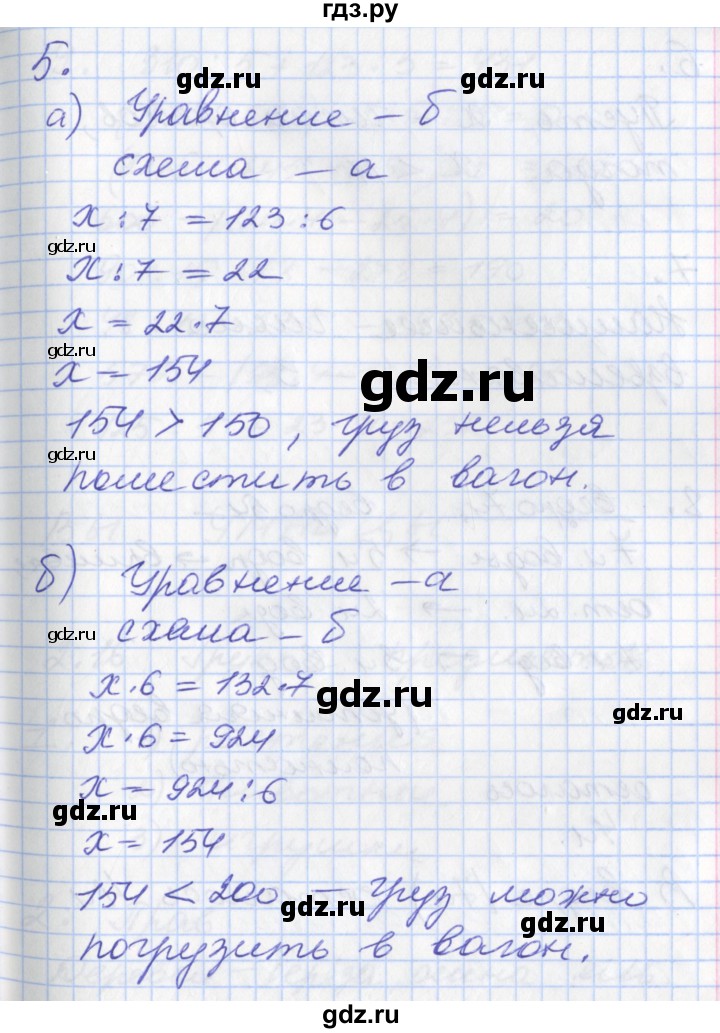 гдз.ру
5.
gdz.ru
а) Уравнение – б
схема – а
х : 7 = 123 : 6
gdz.ru
х : 7 = 22
х = 22 · 7
х = 154
gdz.ru
154 > 150, груз нельзя
gdz.ru
поместить в вагон.
gdz.ru
б) Уравнение – а
gdz.ru
схема – б
х · 6 = 132 · 7
gdz.ru
gdz.ru
х · 6 = 924
х = 924 : 6
gdz.ru
х = 154
154 < 200 – груз можно
gdz.ru
погрузить в вагон.
gdz.ru
gdz.ru